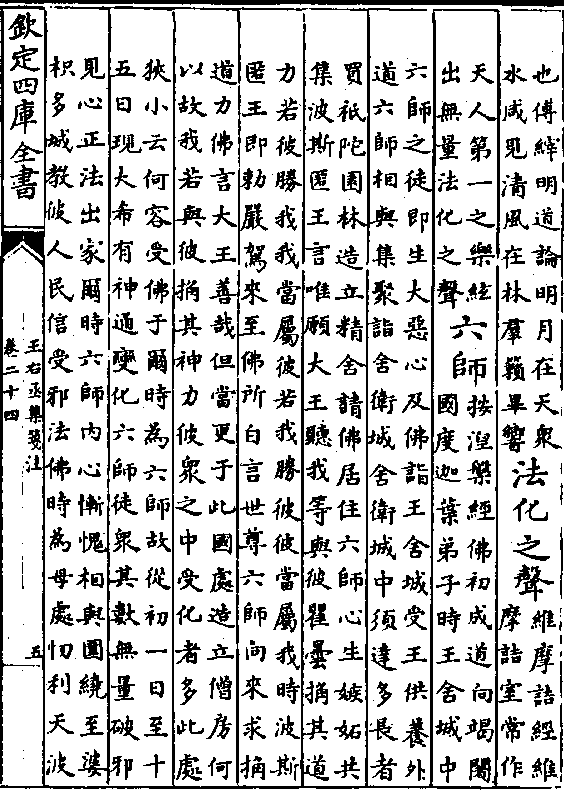 也傅縡明道論明月在天衆
水咸見清風在林羣籟畢響
法化之聲
維摩詰經維
摩詰室常作
天人第一之樂絃
出無量法化之聲
六師
按涅槃經佛初成道向竭闍
國度迦葉弟子時王舍城中
六師之徒即生大惡心及佛詣王舍城受王供養外
道六師相與集聚詣舍衛城舍衛城中須達多長者
買祇陀園林造立精舍請佛居住六師心生嫉妬共
集波斯匿王言唯願大王聽我等與彼瞿曇捔其道
力若彼勝我我當屬彼若我勝彼彼當屬我時波斯
匿王即勅嚴駕來至佛所白言世尊六師向來求捔
道力佛言大王善哉但當更于此國處造立僧房何
以故我若與彼捔其神力彼衆之中受化者多此處
狹小云何容受佛于爾時為六師故從初一日至十
五日現大希有神通變化六師徒衆其數無量破邪
見心正法出家爾時六師內心慚愧相與圍繞至婆
枳多城教彼人民信受邪法佛時為母處忉利天波
欽定四庫全書
王右丞集箋注
卷二十四
五